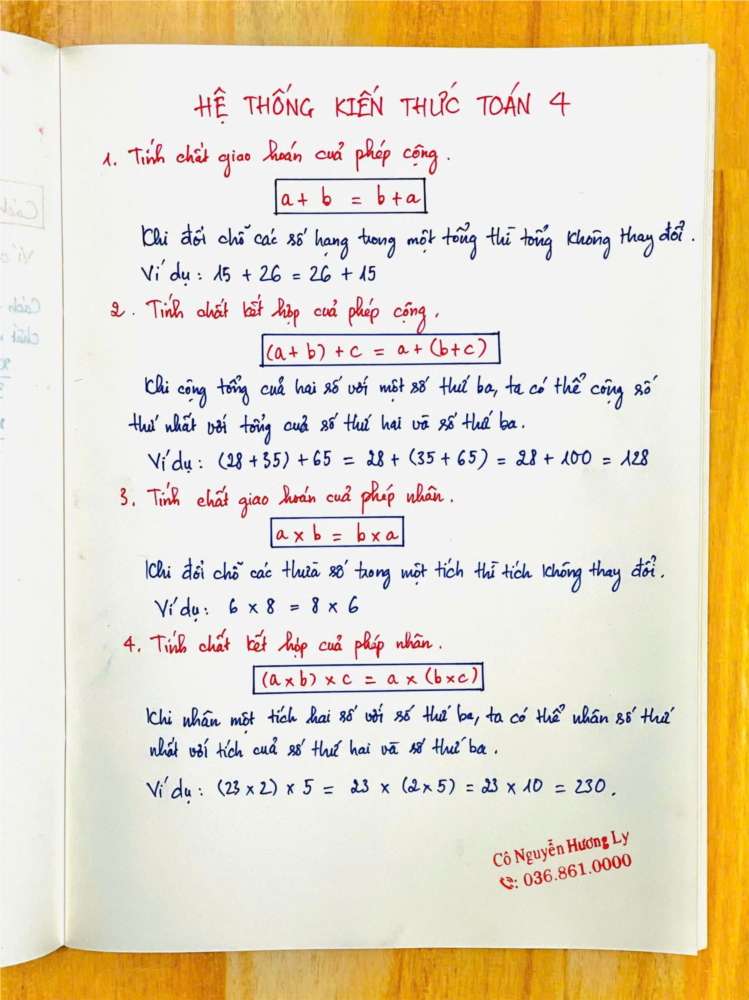 HỆ THỐNG KIẾN THỨC TOÁN 4
1. Tính chất giao hoán của phép cộng.
a + b = b + a
Khi đổi chỗ các số hạng trong một tổng thì tổng không thay đổi.
Ví dụ: 15 + 26 = 26 + 15
2. Tính chất kết hợp của phép cộng.
(a + b) + c = a + (b + c)
Khi cộng tổng của hai số với một số thứ ba, ta có thể cộng số
thứ nhất với tổng của số thứ hai và số thứ ba.
Ví dụ: (28 + 35) + 65 = 28 + (35 + 65) = 28 + 100 = 128
3. Tính chất giao hoán của phép nhân.
a x b = b x a
Khi đổi chỗ các thừa số trong một tích thì tích không thay đổi.
Ví dụ: 6 x 8 = 8 x 6
4. Tính chất kết hợp của phép nhân.
(a x b) x c = a x (b x c)
Khi nhân một tích hai số với số thứ ba, ta có thể nhân số thứ
nhất với tích của số thứ hai và số thứ ba.
Ví dụ: (23 x 2) x 5 = 23 x (2 x 5) = 23 x 10 = 230.
Cô Nguyễn Hương Ly
: 036.861.0000